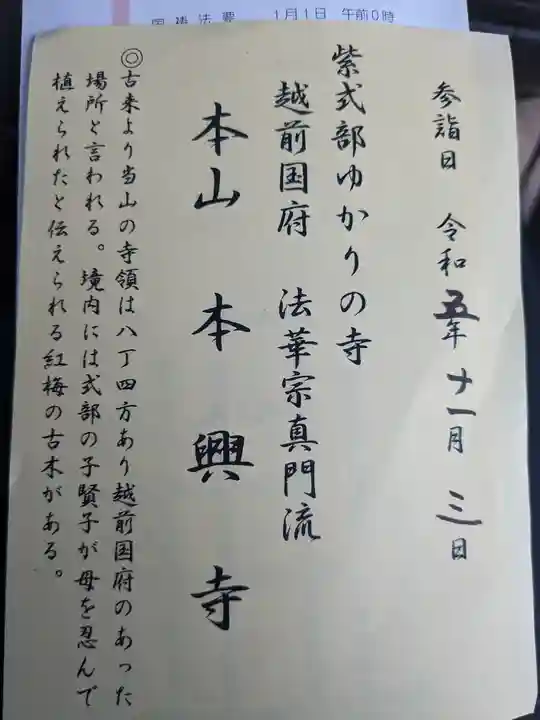 国祷法要 1月1日 午前0時
参詣日 令和五年十一月三日
紫式部ゆかりの寺
越前国府 法華宗真門流
本山 本興寺
◎古来より当山の寺領は八丁四方あり越前国府のあった
場所と言われる。境内には式部の子賢子が母を忍んで
植えられたと伝えられる紅梅の古木がある。